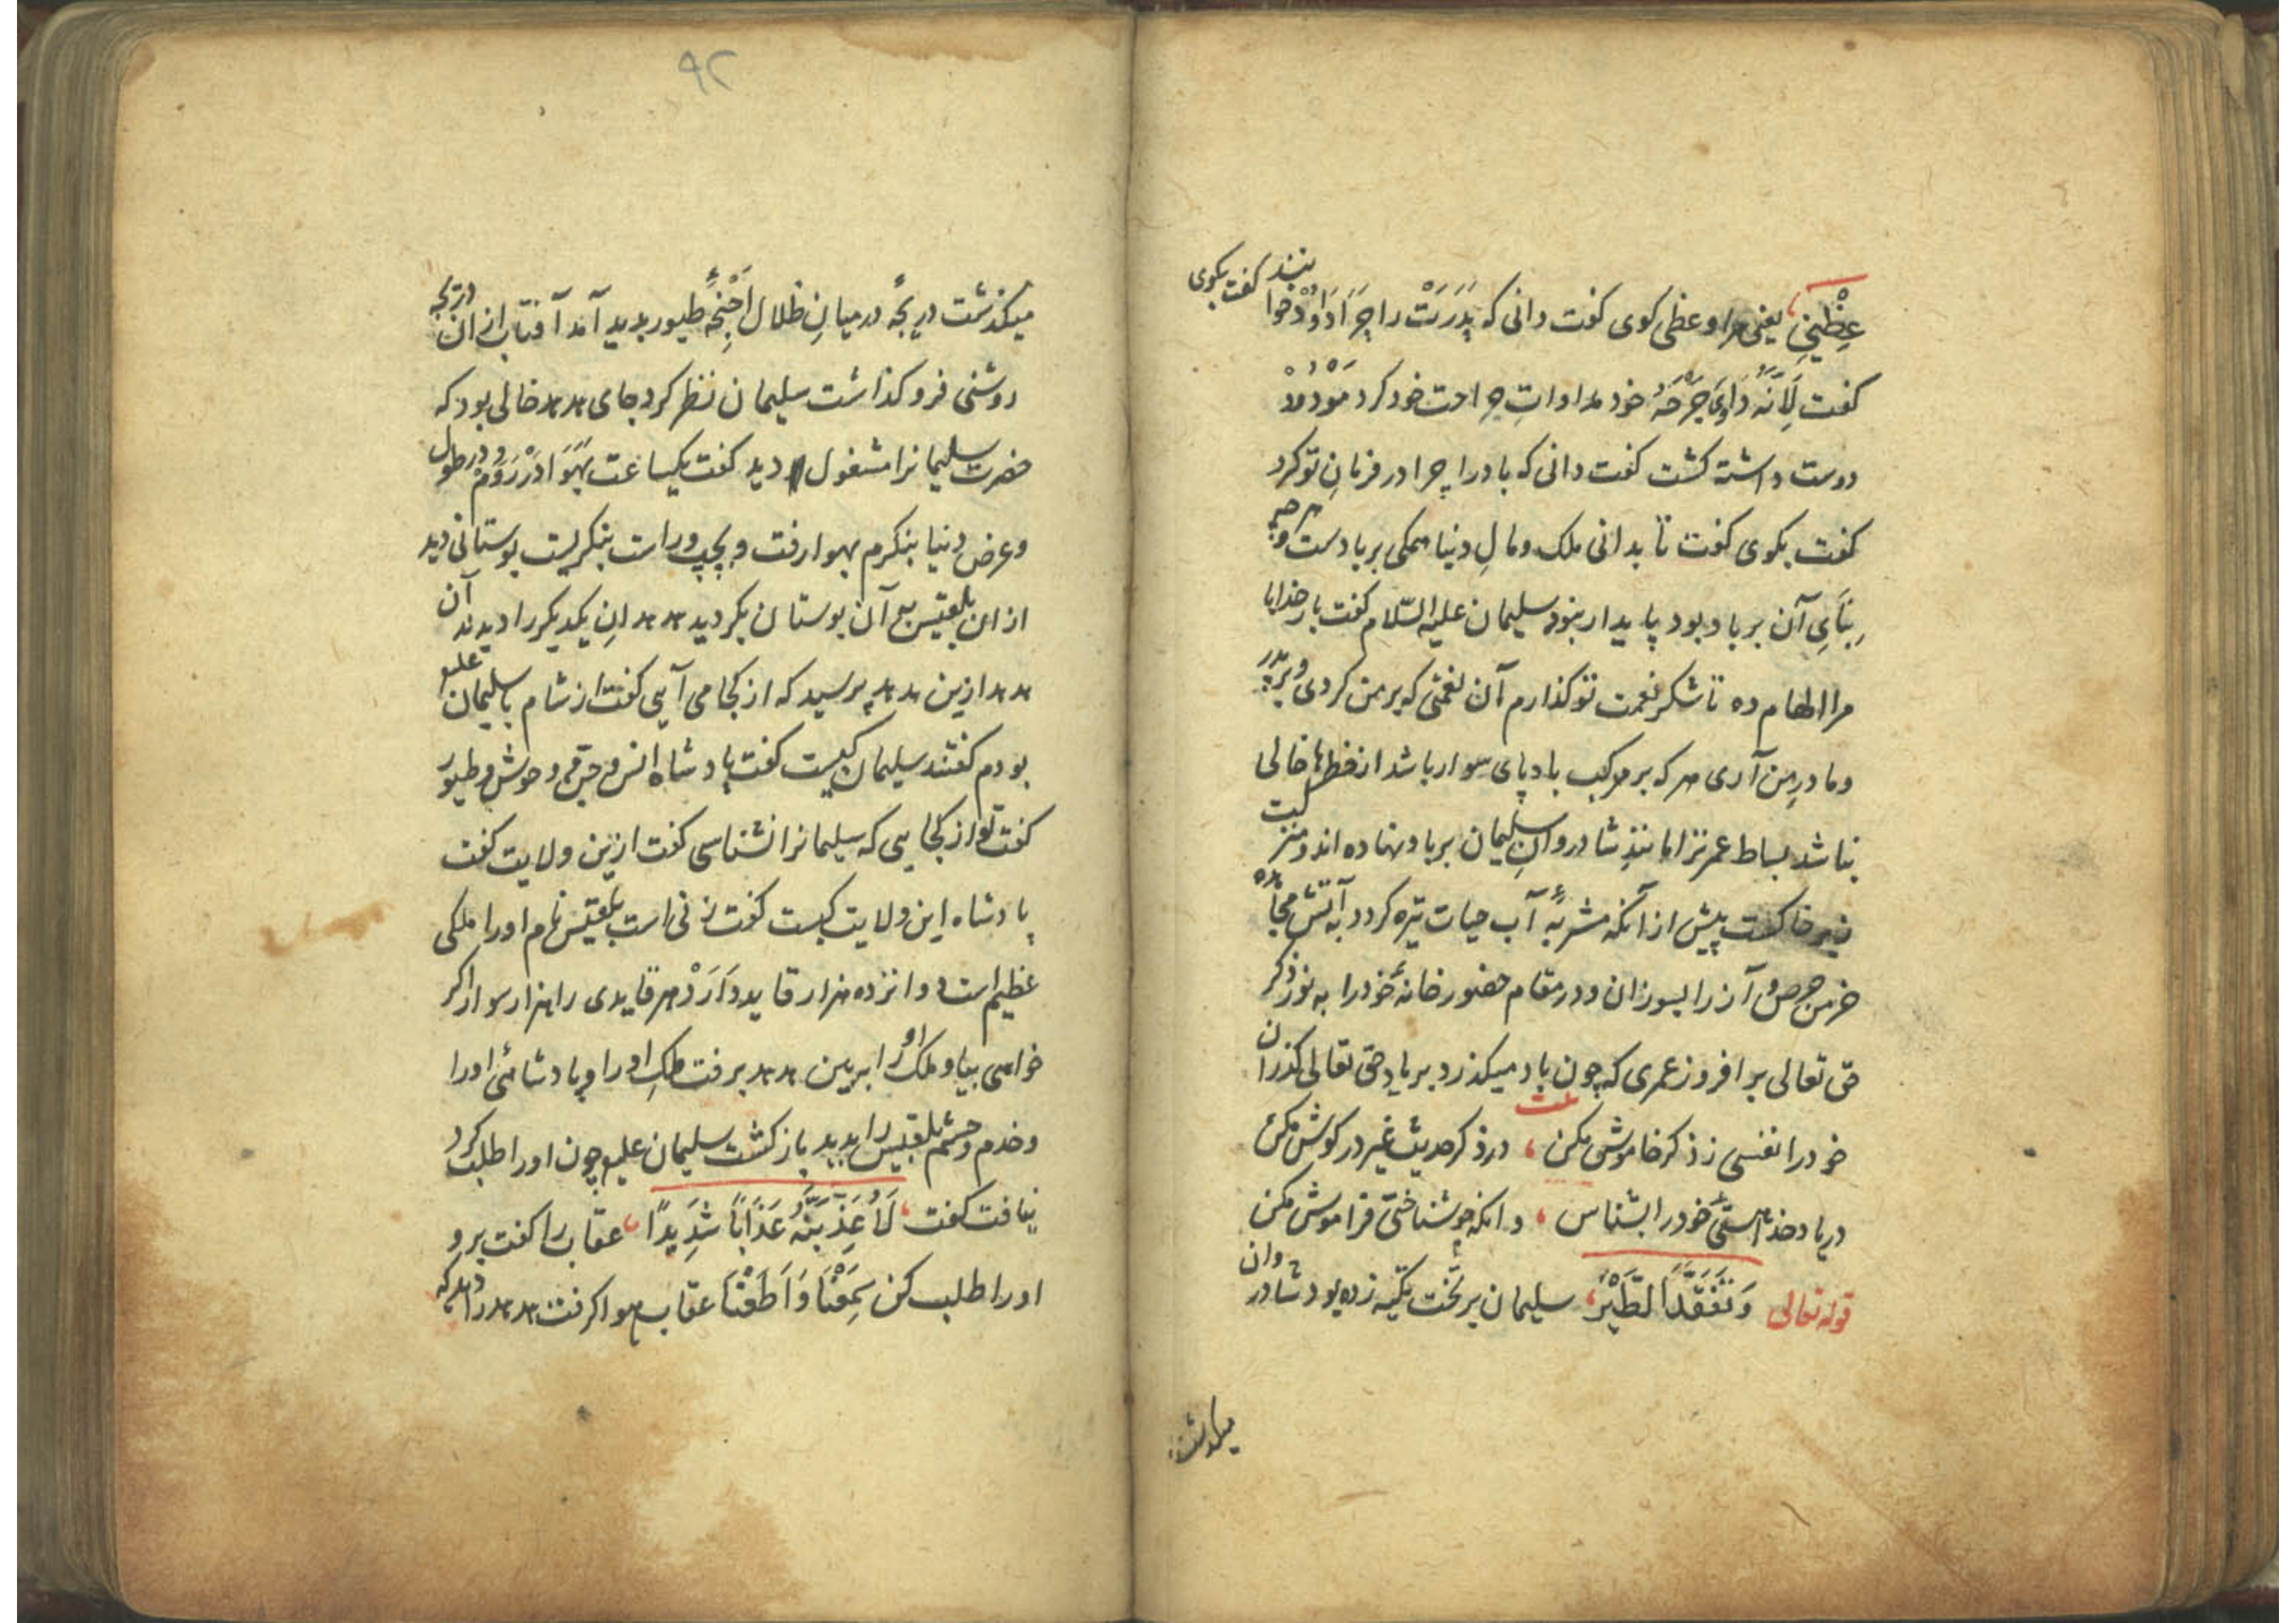 عِظْنِي یعنی مرا وعظی کوی کفت دانی که پَدَرَتْ را چَرَا دَاوُدْ خوانند کفت بکوی
کفت لِاَنَّهُ دَاوَی جَرْحَهُ خود مداواتِ جراحت خود کرد مَوْدُودْ
دوست داشته کشت کفت دانی که باد را چرا در فرمانِ تو کرد
کفت بکوی کفت تا بدانی ملک و مالِ دنیا همکی بر بادست و هرچه
بِنَایِ آن بر باد بود پایدار نبود سلیمان علیه السّلام کفت بار خدایا
مرا الهام ده تا شکر نعمت تو کذارم آن نعمتی که بر من کردی و بر پدر
و مادرِ من آری هر که بر مرکب باد پای سوار باشد از خطرها خالی
نباشد بساط عمر ترا مانندِ شادروانِ سلیمان بر باد نهاده اند و منزلت
زیر خاکست پیش از آنکه مشربهٔ آب حیات تیره کردد به آتش مجاهده
خرمن حرص و آز را بسوزان و در مقام حضور خانهٔ خود را به نور ذکر
حق تعالی برافروز عمری که چون باد میکذرد بر یاد حق تعالی کذران
بیت
خود را نفسی ز ذکر خاموش مکن ، در ذکر حدیث غیر در کوش مکن
در یاد خدا هستیٔ خود را بشناس ، وانکه چو شناختی فراموش مکن
قوله تعالی وَتَفَقَّدَ الطَّیْرَ، سلیمان بر تخت تکیه زده بود شادروان
میکذشت
٩٢
میکذشت دریچهٔ در میانِ ظلال اَجْنِحَهٔ طیور بدید آمد آفتاب از آن دریچه
روشنی فرو کذاشت سلیمان نظر کرد جای هدهد خالی بود که
حضرت سلیمانرا مشغول دید کفت یکساعت بِهَوَا دَرْرَوَمْ و در طول
و عرض دنیا بنکرم بهوا رفت و بچپ و راست بنکریست بوستانی دید
از ان بلقیس بر آن بوستان بکردید هدهدانِ یکدیکر را دیدند آن
هدهد ازین هدهد پرسید که از کجا می آیی کفت از شام با سلیمان علیه
بودم کفتند سلیمان کیست کفت پادشاه انس و جن و وحوش و طیور
کفت تو از کجایی که سلیمانرا نشناسی کفت ازین ولایت کفت
پادشاه این ولایت کیست کفت زنی است بلقیس نام او را ملکی
عظیم است دوانزده هزار قاید دَارَدْ هر قایدی را هزار سوار اکر
خواهی بیا و ملک او را ببین هدهد برفت ملکِ او را و پادشاهیٔ او را
و خدم و حشم بلقیس را بدید باز کشت سلیمان علیه چون او را طلب کرد
نیافت کفت لَاُعَذِّبَنَّهُ عَذَابًا شَدِیدًا، عقاب را کفت برو
او را طلب کن سَمِعْنَا وَاَطَعْنَا عقاب هوا کرفت هدهد را دید که